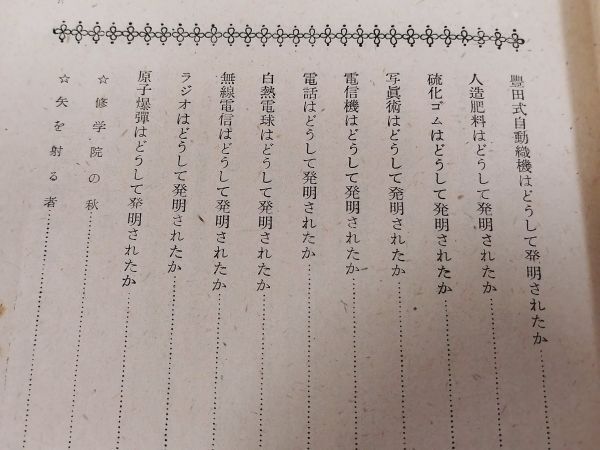 豊田式自動織機はどうして発明されたか
人造肥料はどうして発明されたか
硫化ゴムはどうして発明されたか
写眞術はどうして発明されたか
電信機はどうして発明されたか
電話はどうして発明されたか
白熱電球はどうして発明されたか
無線電信はどうして発明されたか
ラジオはどうして発明されたか
原子爆彈はどうして発明されたか
☆修学院の秋
☆矢を射る者